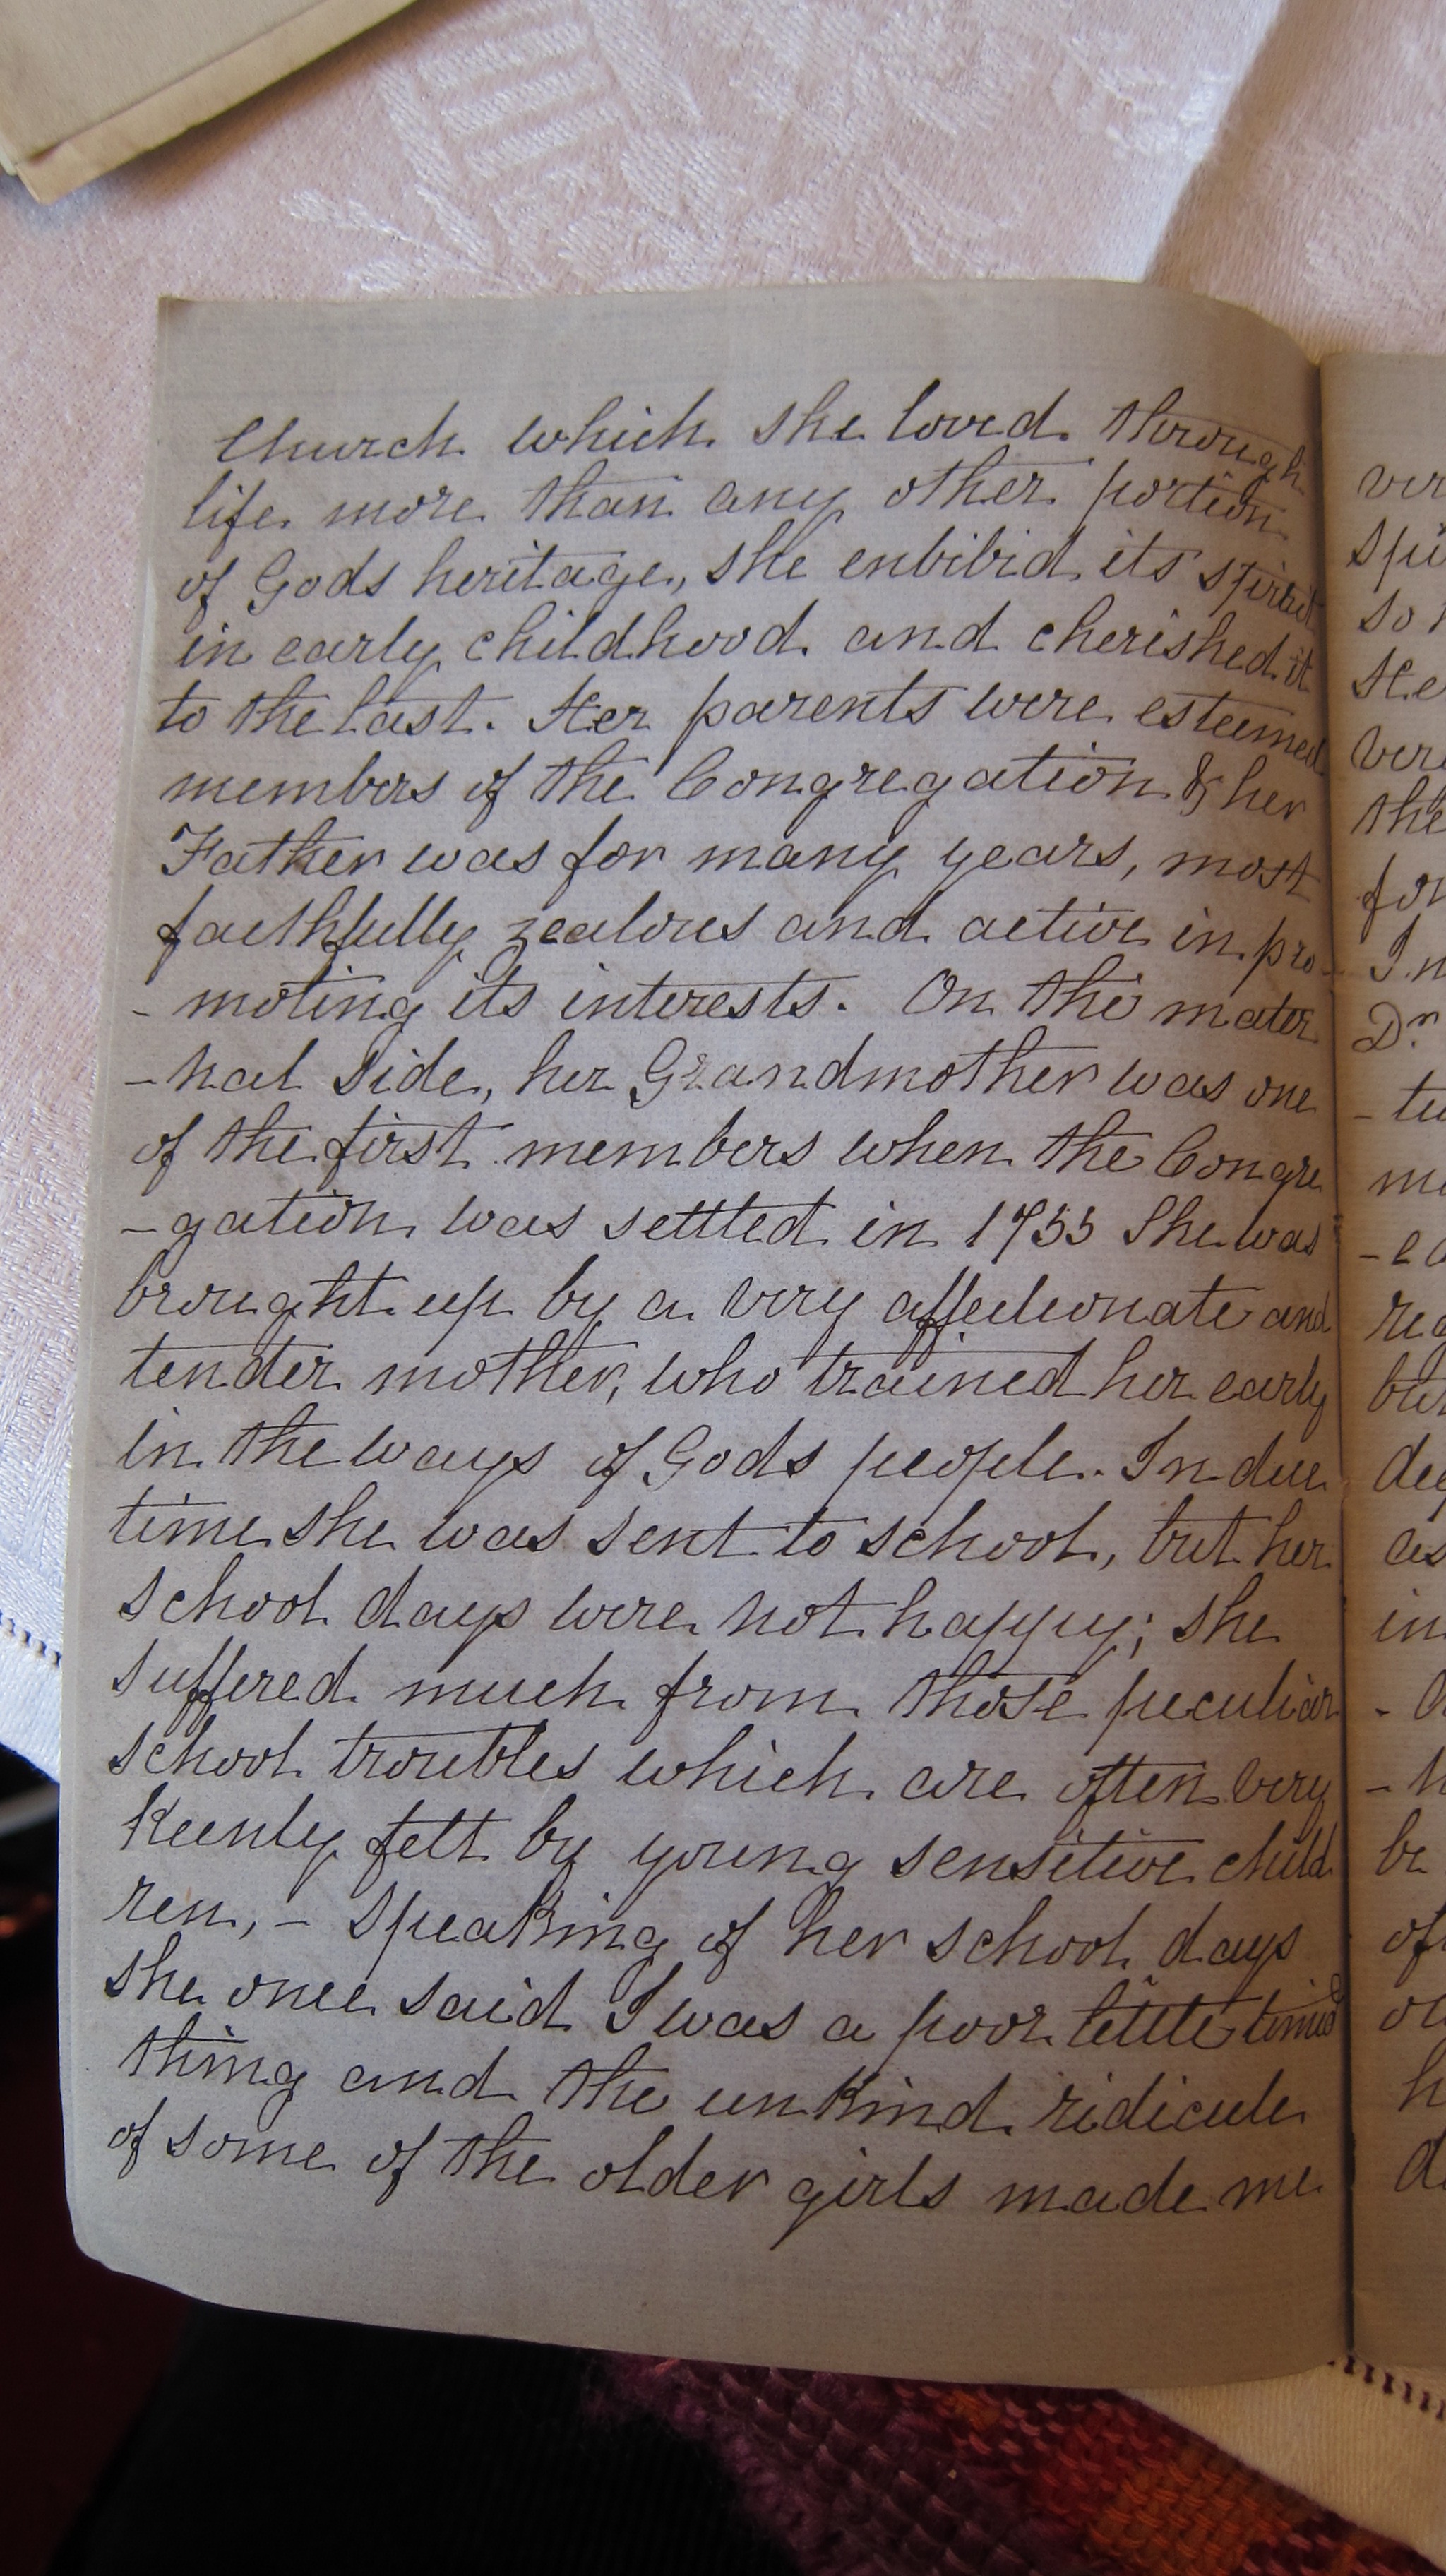 Church which she loved through
life more than any other portion
of Gods heritage, she enbibid its spirit
in early childhood and cherished it
to the last. Her parents were esteemed
members of the Congregation & her
Father was for many years, most
faithfully zealous and active in pro-
-moting its interests. On the mater
-nal side, her Grandmother was one
of the first members when the Congre
-gation was settled in 1755 She was
brought up by a very affectionate and
tender mother, who trained her early
in the ways of Gods people. In due
time she was sent to school, but her
school days were not happy; she
suffered much from those peculiar
school troubles which are often very
keenly felt by young sensitive child
ren, - Speaking of her school days
she once said I was a poor little timid
thing and the unkind ridicule
of some of the older girls made me
ver
spi
so
He
ver
the
for
In
Dr
- tu
me
- ea
reg
but
dee
as
in
-
-
be
of
h
d